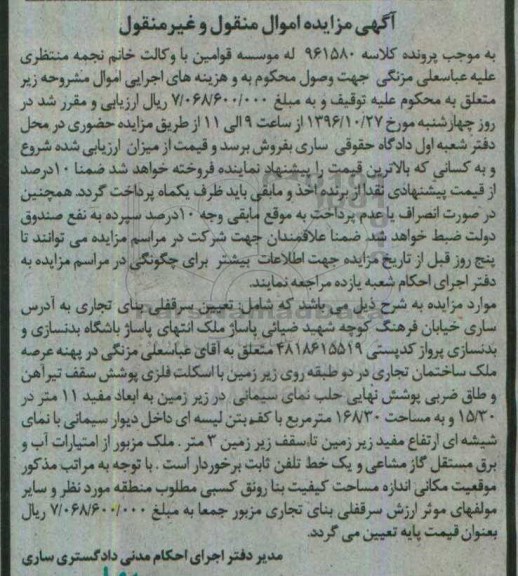 آگهی مزایده اموال منقول و غیرمنقول
به موجب پرونده کلاسه ۹۶۱۵۸۰ له موسسه قوامین با وکالت خانم نجمه منتظری
علیه عباسعلی مزنگی جهت وصول محکوم به و هزینه های اجرایی اموال مشروحه زیر
متعلق به محکوم علیه توقیف و به مبلغ ۷/۰۶۸/۶۰۰/۰۰۰ ریال ارزیابی و مقرر شد در
روز چهارشنبه مورخ ۱۳۹۶/۱۰/۲۷ از ساعت ۹ الی ۱۱ از طریق مزایده حضوری در محل
دفتر شعبه اول دادگاه حقوقی ساری بفروش برسد و قیمت از میزان ارزیابی شده شروع
و به کسانی که بالاترین قیمت را پیشنهاد نماینده فروخته خواهد شد ضمنا ۱۰درصد
از قیمت پیشنهادی نقدا از برنده اخذ و مابقی باید ظرف یکماه پرداخت گردد. همچنین
در صورت انصراف یا عدم پرداخت به موقع مابقی وجه ۱۰درصد سپرده به نفع صندوق
دولت ضبط خواهد شد. ضمنا علاقمندان جهت شرکت در مراسم مزایده می توانند تا
پنج روز قبل از تاریخ مزایده جهت اطلاعات بیشتر برای چگونگی در مراسم مزایده به
دفتر اجرای احکام شعبه یازده مراجعه نمایند.
موارد مزایده به شرح ذیل می باشد که شامل تعیین سرقفلی بنای تجاری به آدرس
ساری خیابان فرهنگ کوچه شهید ضیائی پاساژ ملک انتهای پاساژ باشگاه بدنسازی و
بدنسازی پرواز کدپستی ۴۸۱۸۶۱۵۵۱۹ متعلق به آقای عباسعلی مزنگی در پهنه عرصه
ملک ساختمان تجاری در دو طبقه روی زیر زمین با اسکلت فلزی پوشش سقف تیرآهن
و طاق ضربی پوشش نهایی حلب نمای سیمانی در زیر زمین به ابعاد مفید ۱۱ متر در
۱۵/۳۰ و به مساحت ۱۶۸/۳۰ مترمربع با کف بتن لیسه ای داخل دیوار سیمانی با نمای
شیشه ای ارتفاع مفید زیر زمین تا سقف زیر زمین ۳ متر . ملک مزبور از امتیازات آب و
برق مستقل گاز مشاعی و یک خط تلفن ثابت برخوردار است . با توجه به مراتب مذکور
موقعیت مکانی اندازه مساحت کیفیت بنا رونق کسبی مطلوب منطقه مورد نظر و سایر
مولفهای موثر ارزش سرقفلی بنای تجاری مزبور جمعا به مبلغ ۷/۰۶۸/۶۰۰/۰۰۰ ریال
بعنوان قیمت پایه تعیین می گردد.
مدیر دفتر اجرای احکام مدنی دادگستری ساری